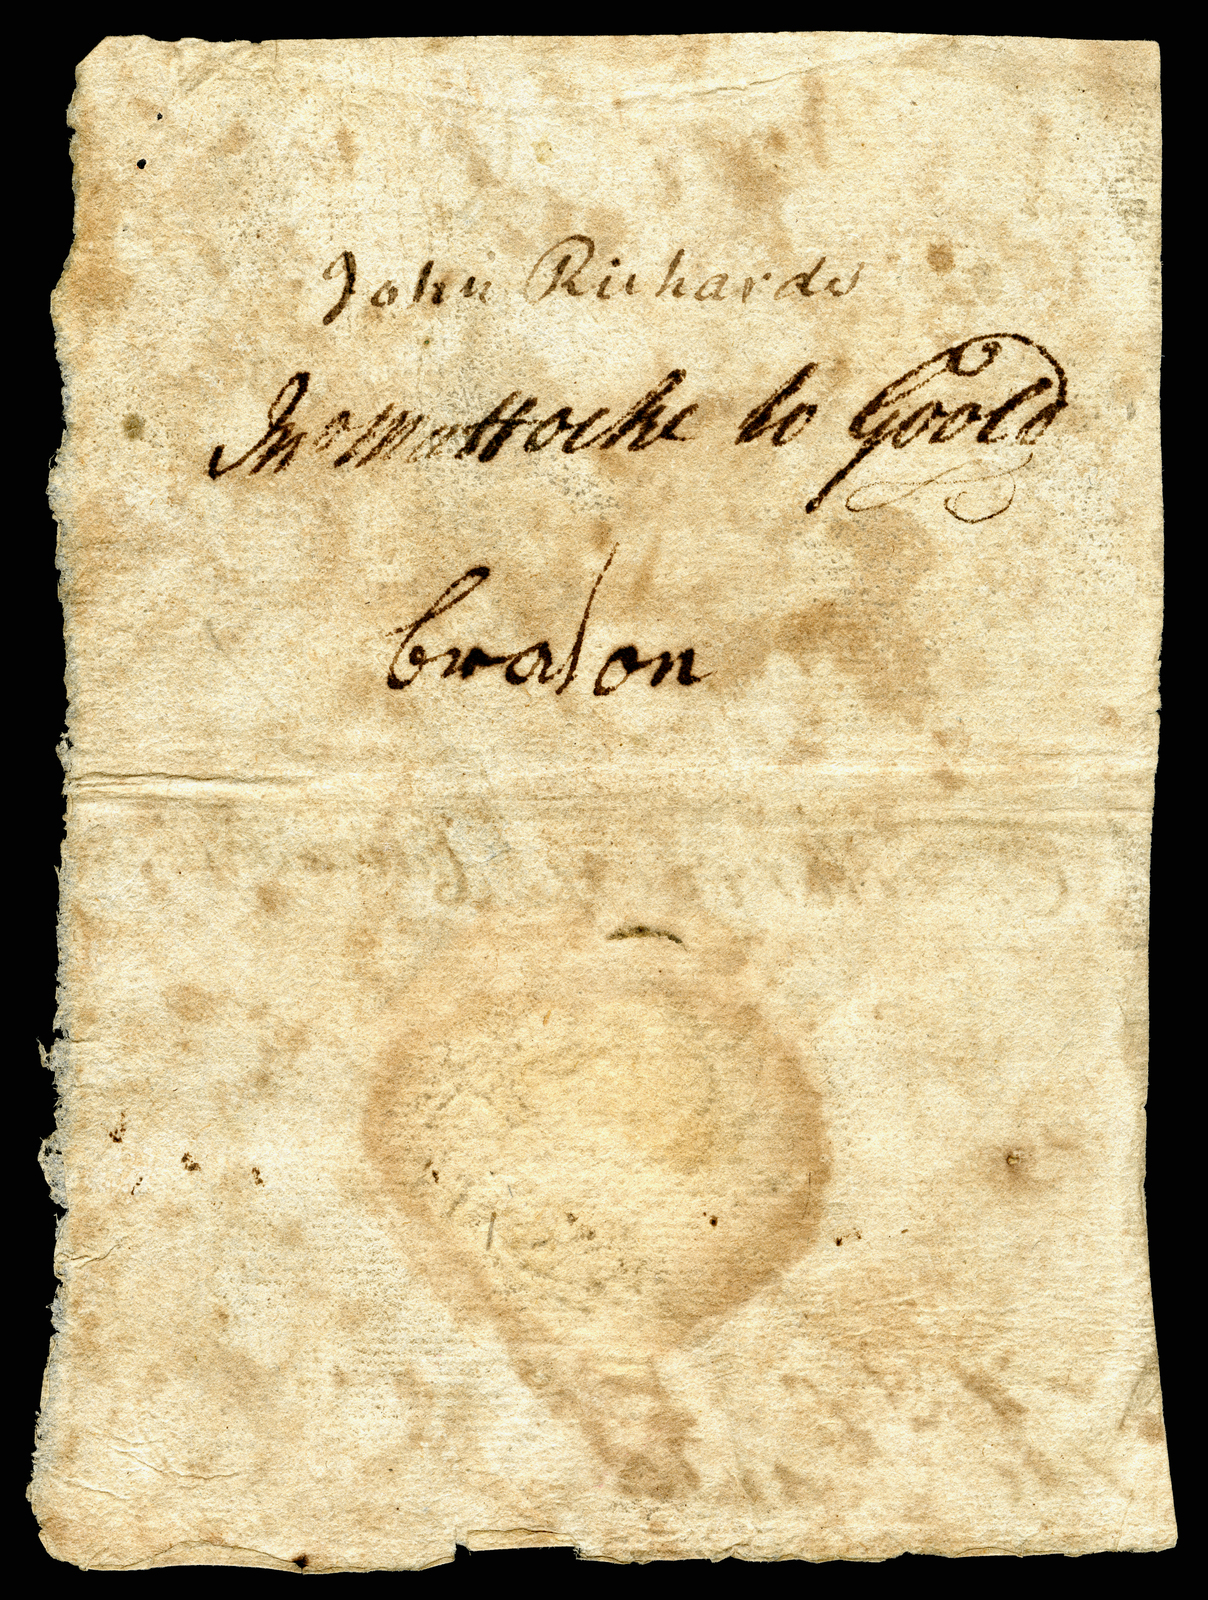 John Richards
Jno Mattocke to Goold